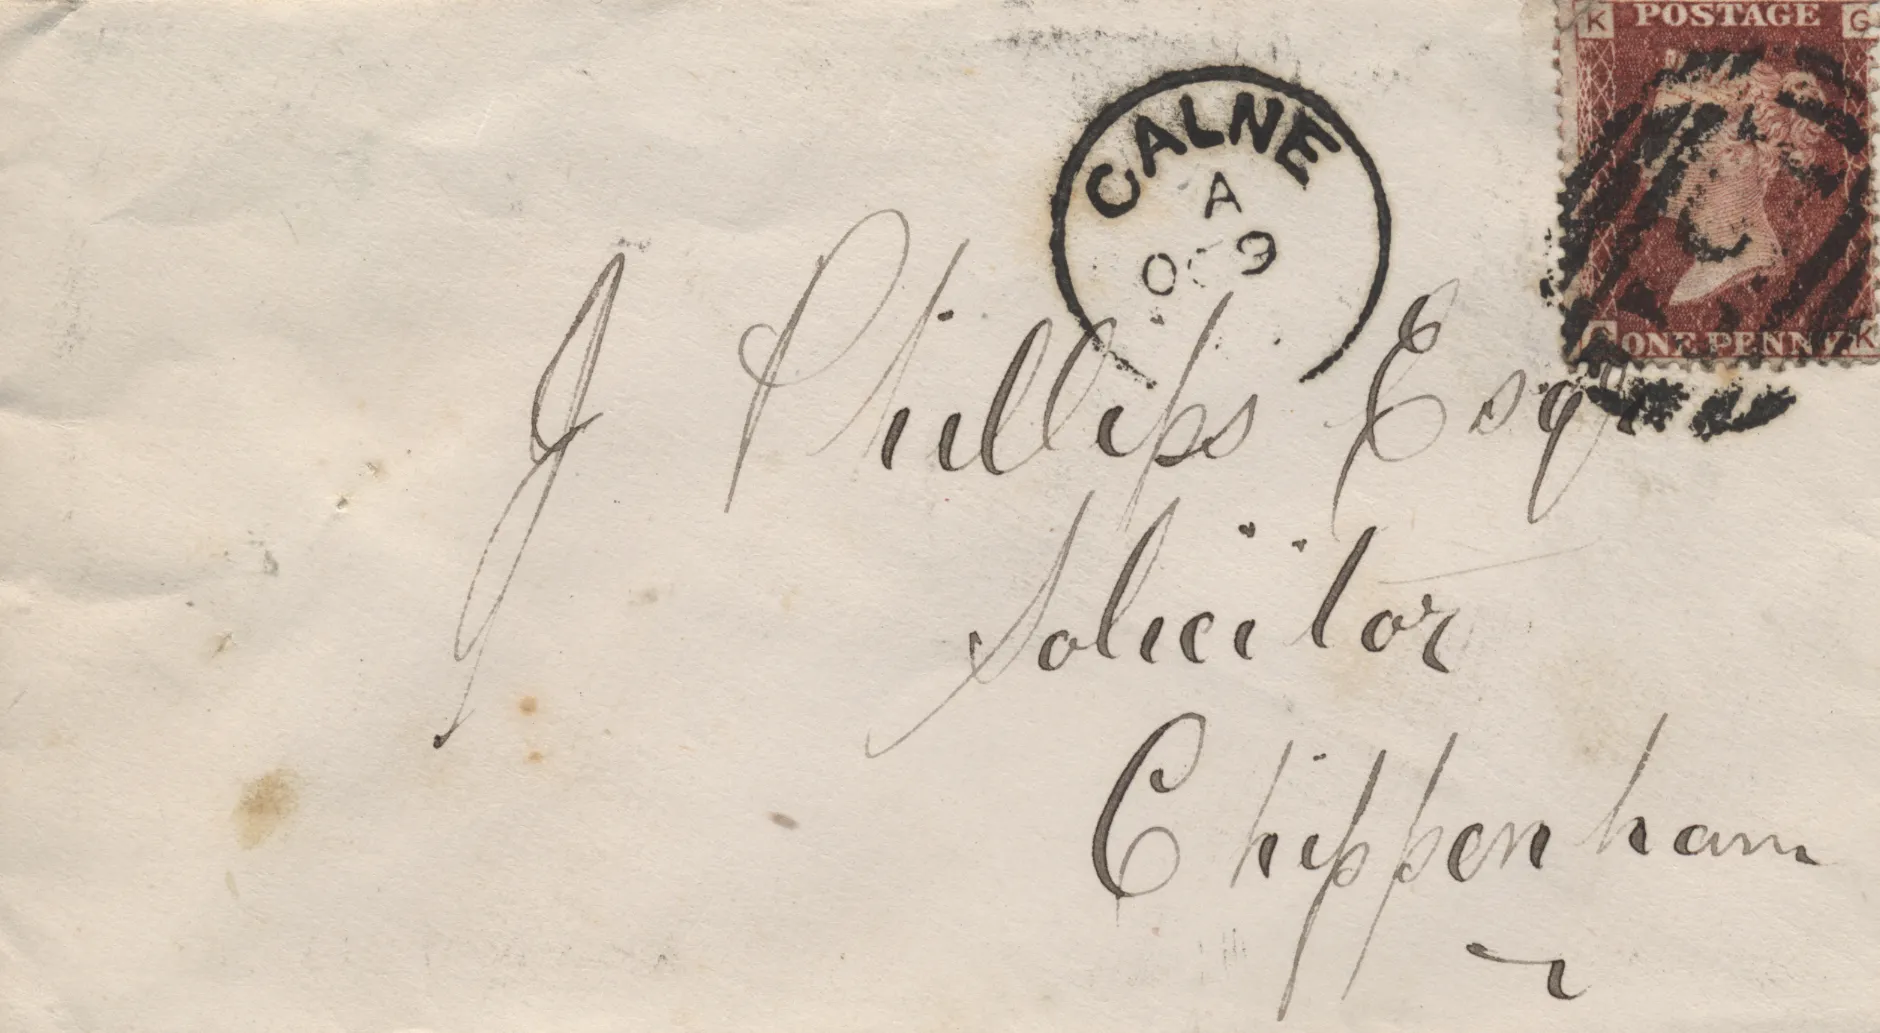 K POSTAGE G
CALNE
A
OC 9
G ONE PENNY K
J Phillips Esqr
Solicitor
Chippenham